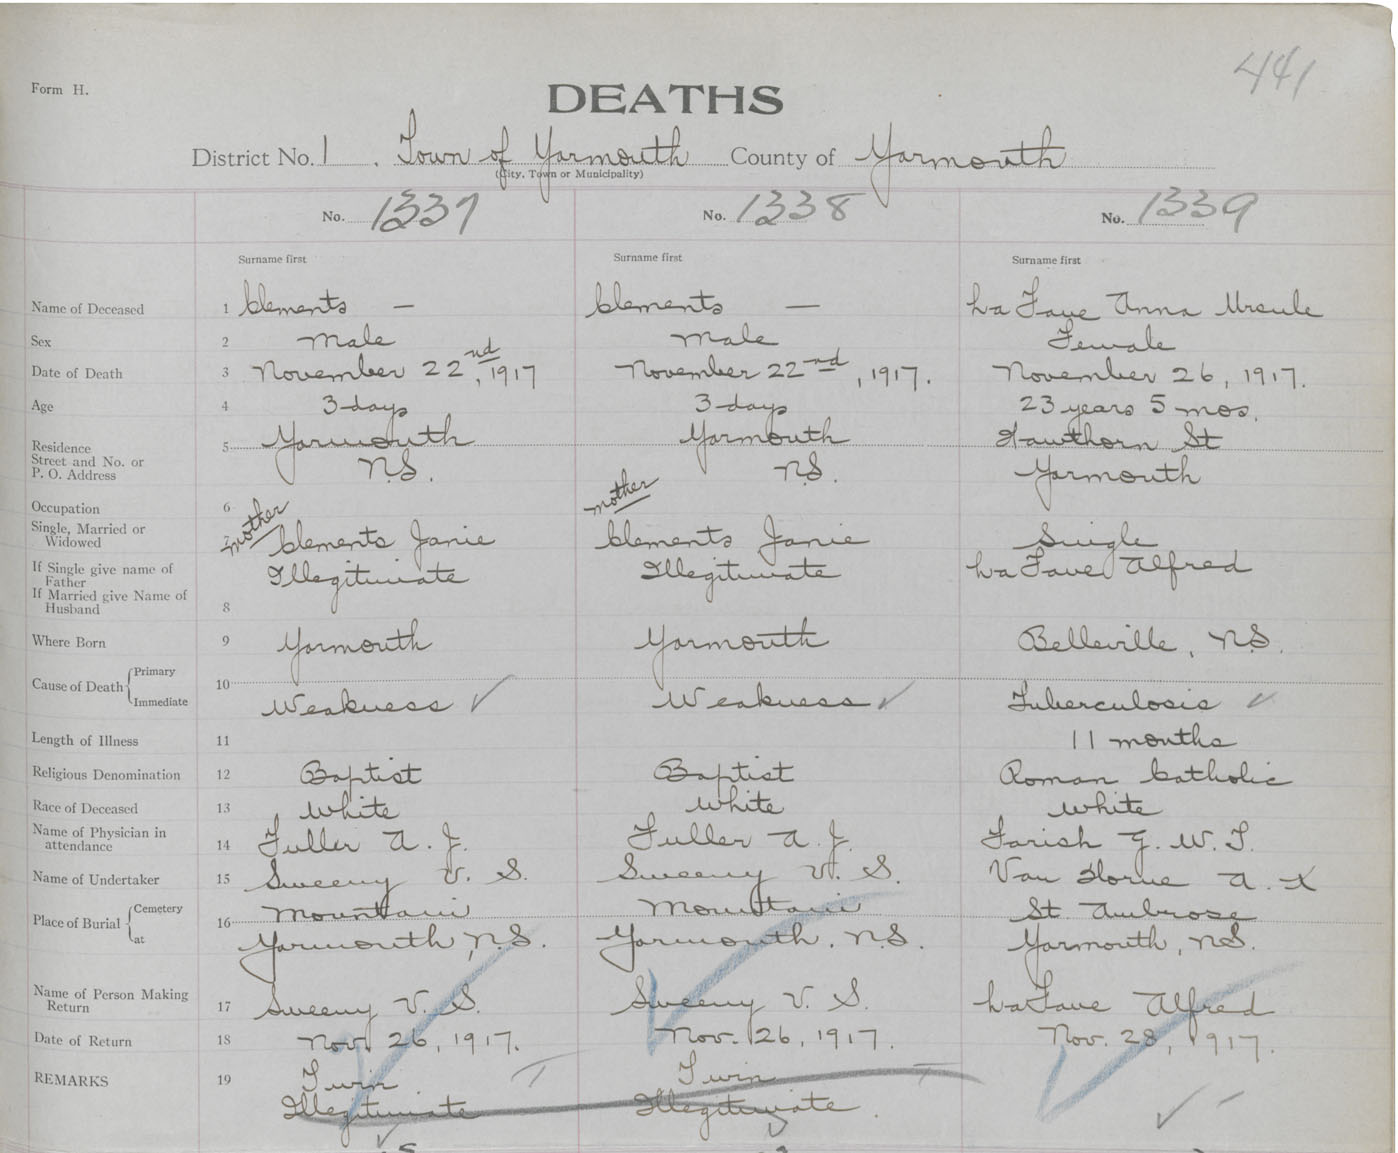 441
Form H.
DEATHS
District No. 1 . Town of Yarmouth County of Yarmouth
(City, Town or Municipality)
No. 1337 No. 1338 No. 1339
Surname first Surname first Surname first
Name of Deceased 1 Clements — Clements — La Fave Anna Ursule
Sex 2 Male Male Female
Date of Death 3 November 22nd, 1917 November 22nd, 1917. November 26, 1917.
Age 4 3 days 3 days 23 years 5 mos.
Residence 5 Yarmouth Yarmouth Hawthorn St
Street and No. or
P. O. Address N.S. N.S. Yarmouth
Occupation 6 mother mother
Single, Married or
Widowed 7 Clements Janie Clements Janie Single
If Single give name of
Father Illegitimate Illegitimate La Fave Alfred
If Married give Name of
Husband 8
Where Born 9 Yarmouth Yarmouth Belleville, N.S.
Cause of Death { Primary 10
Immediate Weakness ✓ Weakness ✓ Tuberculosis ✓
Length of Illness 11 11 months
Religious Denomination 12 Baptist Baptist Roman Catholic
Race of Deceased 13 White White White
Name of Physician in
attendance 14 Fuller A. J. Fuller A. J. Farish G. W. T.
Name of Undertaker 15 Sweeny V. S. Sweeny V. S. Van Horne A. K
Place of Burial { Cemetery 16 Mountain Mountain St. Ambrose
at Yarmouth, N.S. Yarmouth, N.S. Yarmouth, N.S.
Name of Person Making
Return 17 Sweeny V. S. Sweeny V. S. La Fave Alfred
Date of Return 18 Nov. 26, 1917. Nov. 26, 1917. Nov. 28, 1917.
REMARKS 19 Twin Twin
Illegitimate Illegitimate.